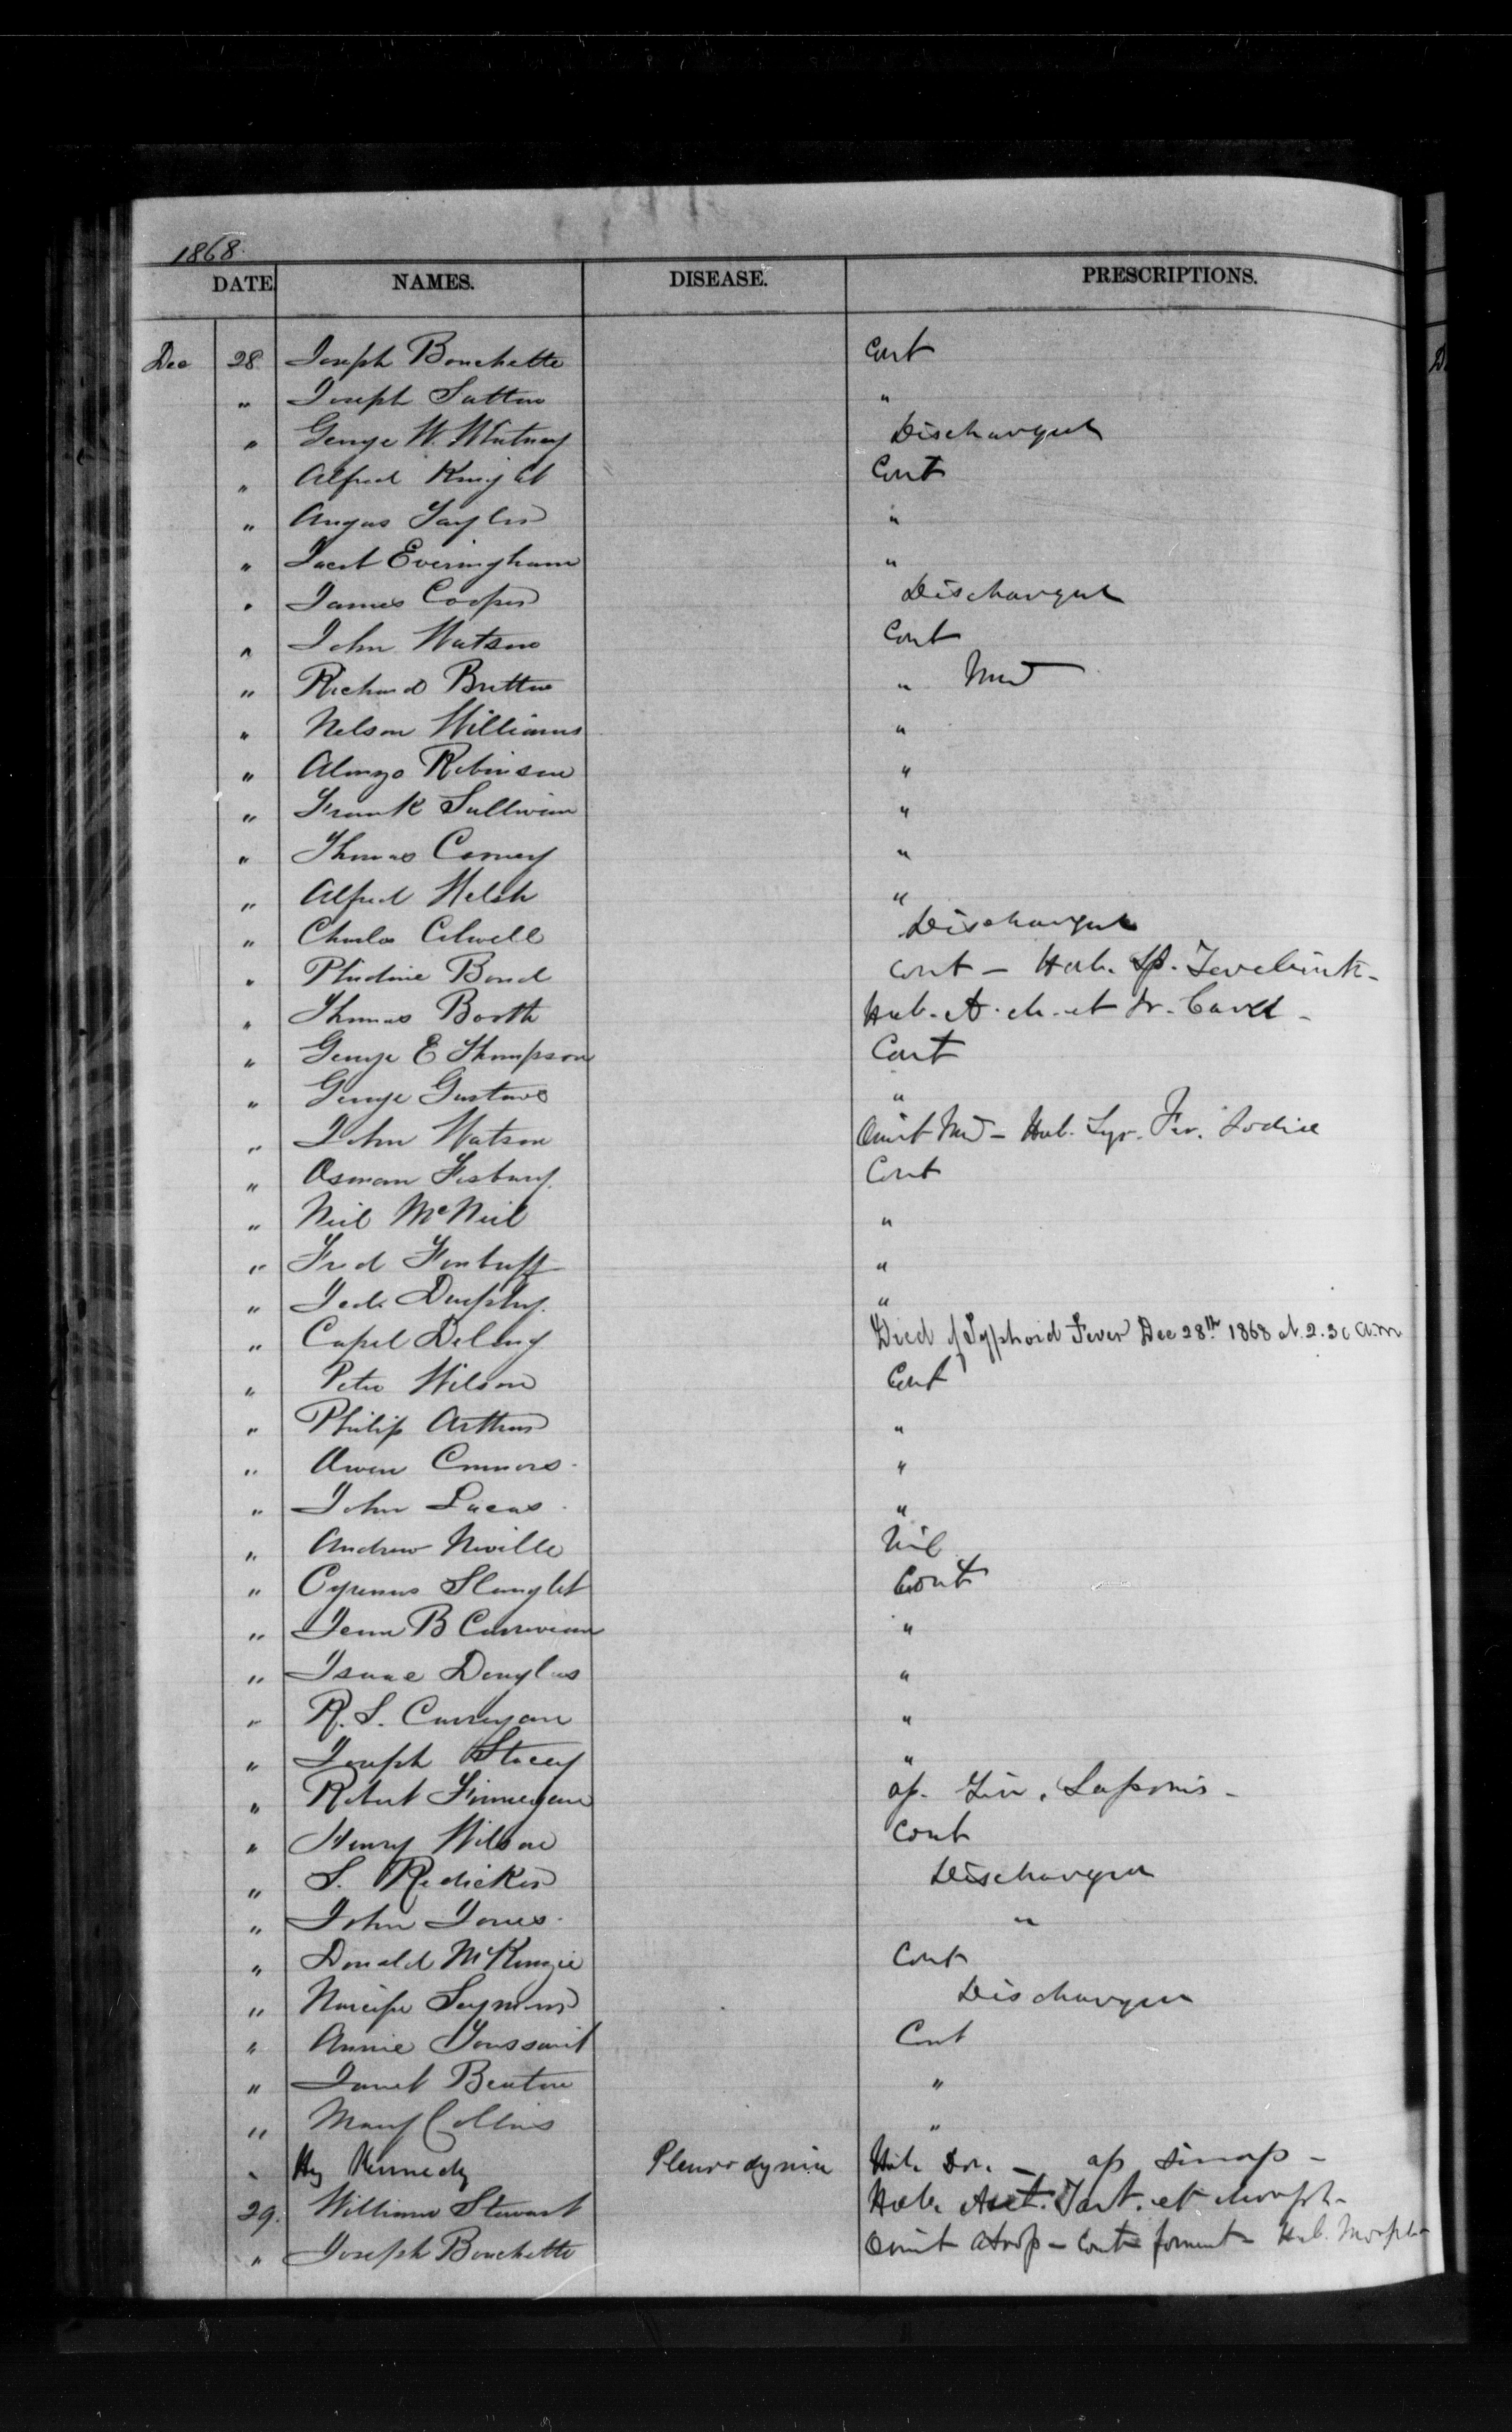 1868.
DATE NAMES. DISEASE. PRESCRIPTIONS.
Dec 28 Joseph Bouchette Cont
" Joseph Sutton "
" George W. Whitney Discharged
" Alfred Knight Cont
" Angus Taylor "
" Jacob Everingham "
" James Cooper Discharged
" John Watson Cont
" Richard Britton "
" Nelson Williams "
" Alonzo Robinson "
" Frank Sullivan "
" Thomas Carney "
" Alfred Welsh "
" Charles Colwell Discharged
" Bond Cont - Hab.
" Thomas Booth Hab.
" George E Thompson Cont
" George Gustave "
" John Watson Omit - Hab. Syr. Fer. Iodid
" Osman Cont
" Neil McNeil "
" Fred "
" "
" Died of Typhoid Fever Dec 28th 1868 at 2.30 a.m
" Peter Wilson Cont
" Philip Arthur "
" Owen Connors "
" John Lucas "
" Andrew Neville Nil
" Cyrenus Slaught Cont
" B "
" Isaac Douglas "
" R. S. Curregan "
" Joseph Stacey "
" Robert Finnegan ap. Lin. Saponis -
" Henry Wilson Cont
" S. Redicker Discharged
" John Jones "
" Donald McKenzie Cont
" Seymour Discharged
" Annie Toussaint Cont
" Janet Beaton "
" Mary Collins "
" Hy Kennedy Pleurodynia ap sinap -
29. William Stewart Hab. Tart. et Morph -
" Joseph Bouchette Omit Atrop - Cont foment - Hab. Morph -